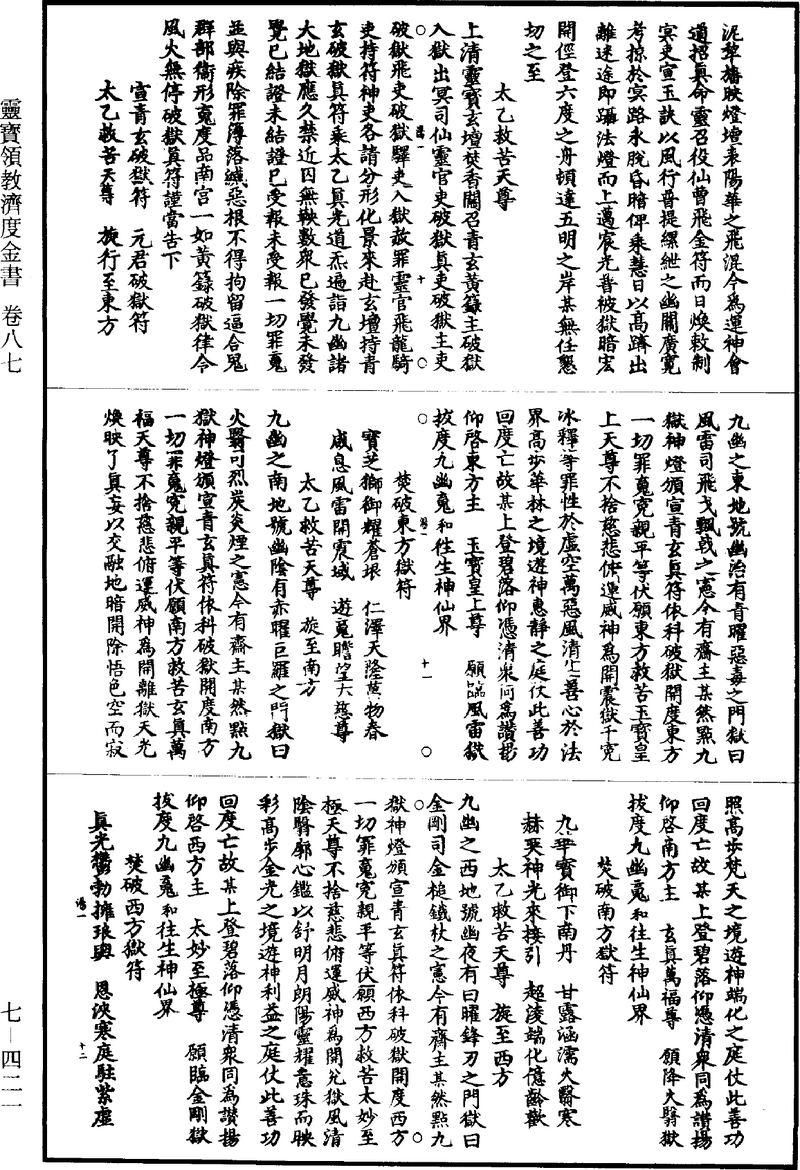 靈寶領教濟度金書 卷八七
七－四二一
泥犂播映燈壇表陽華之飛混今為運神會
道招真命靈召役仙曹飛金符而日煥敕制
冥吏宣玉訣以風行普提縲紲之幽關廣寬
考掠於冥路永脫昏暗俾乘慧日以高躋出
離迷途即躡法燈而上邁宸光普被獄暗宏
開徑登六度之舟頓達五明之岸某無任懇
切之至
太乙救苦天尊
上清靈寶玄壇焚香關召青玄黃籙主破獄
入獄出冥司仙靈官吏破獄真吏破獄主吏
破獄飛吏破獄驛吏入獄赦罪靈官飛龍騎
吏持符神吏各請分形化景來赴玄壇持青
玄破獄真符乘太乙真光道炁遍詣九幽諸
大地獄應久禁近囚無鞅數眾已發覺未發
覺已結證未結證已受報未受報一切罪魂
並與疾除罪簿落滅惡根不得拘留逼合鬼
群部衛形魂度品南宮一如黃籙破獄律令
風火無停破獄真符謹當告下
宣青玄破獄符 元君破獄符
太乙救苦天尊 旋行至東方
九幽之東地號幽治有青曜惡毒之門獄曰
風雷司飛戈飄戟之憲今有齋主某然點九
獄神燈頒宣青玄真符依科破獄開度東方
一切罪魂冤親平等伏願東方救苦玉寶皇
上天尊不捨慈悲俯運威神為開震獄千寃
冰釋等罪性於虛空萬惡風清生善心於法
界高步華林之境遊神惠靜之庭仗此善功
回度亡故某上登碧落仰憑清眾同為讚揚
仰啓東方主 玉寶皇上尊 願臨風雷獄
拔度九幽魂和往生神仙界
焚破東方獄符
寶芝獅御耀蒼垠 仁澤天隆萬物春
威息風雷開震域 遊魂瞻望大慈尊
太乙救苦天尊 旋至南方
九幽之南地號幽陰有赤曜巨羅之門獄曰
火翳司烈炭炎煙之憲今有齋主某然點九
獄神燈頒宣青玄真符依科破獄開度南方
一切罪魂冤親平等伏願南方救苦玄真萬
福天尊不捨慈悲俯運威神為開離獄天光
煥映了真妄以交融地暗開除悟色空而寂
照高步梵天之境遊神端化之庭仗此善功
回度亡故某上登碧落仰憑清眾同為讚揚
仰啓南方主 玄真萬福尊 願降火翳獄
拔度九幽魂和往生神仙界
焚破南方獄符
九苹寶御下南丹 甘露涵濡火翳寒
赫奕神光來接引 超淩端化億齡歡
太乙救苦天尊 旋至西方
九幽之西地號幽夜有曰曜鋒刃之門獄曰
金剛司金槌鐵杖之憲今有齋主某然點九
獄神燈頒宣青玄真符依科破獄開度西方
一切罪魂冤親平等伏願西方救苦太妙至
極天尊不捨慈悲俯運威神為開兌獄風清
陰翳廓心鑑以舒明月朗陽靈耀意珠而映
彩高步金光之境遊神利益之庭仗此善功
回度亡故某上登碧落仰憑清眾同為讚揚
仰啓西方主 太妙至極尊 願臨金剛獄
拔度九幽魂和往生神仙界
焚破西方獄符
真光鬱勃擁琅輿 恩浹寒庭駐紫虛